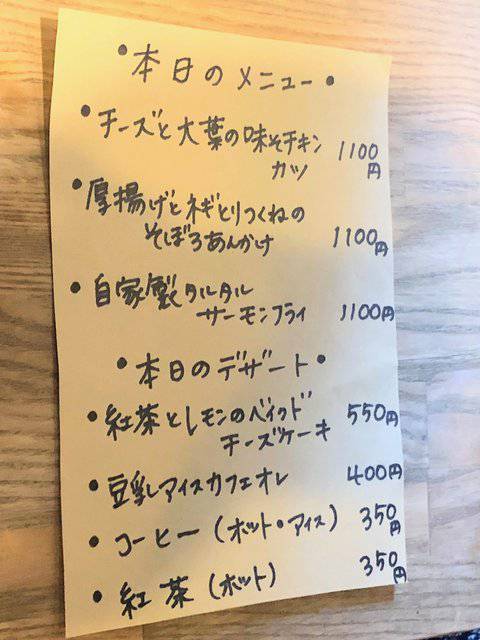 •本日のメニュー•
•チーズと大葉の味そチキン
カツ 1100円
•厚揚げとネギとりつくねの
そぼろあんかけ 1100円
•自家製タルタル
サーモンフライ 1100円
•本日のデザート•
•紅茶とレモンのベイクド
チーズケーキ 550円
•豆乳アイスカフェオレ 400円
•コーヒー(ホット・アイス) 350円
•紅茶(ホット) 350円